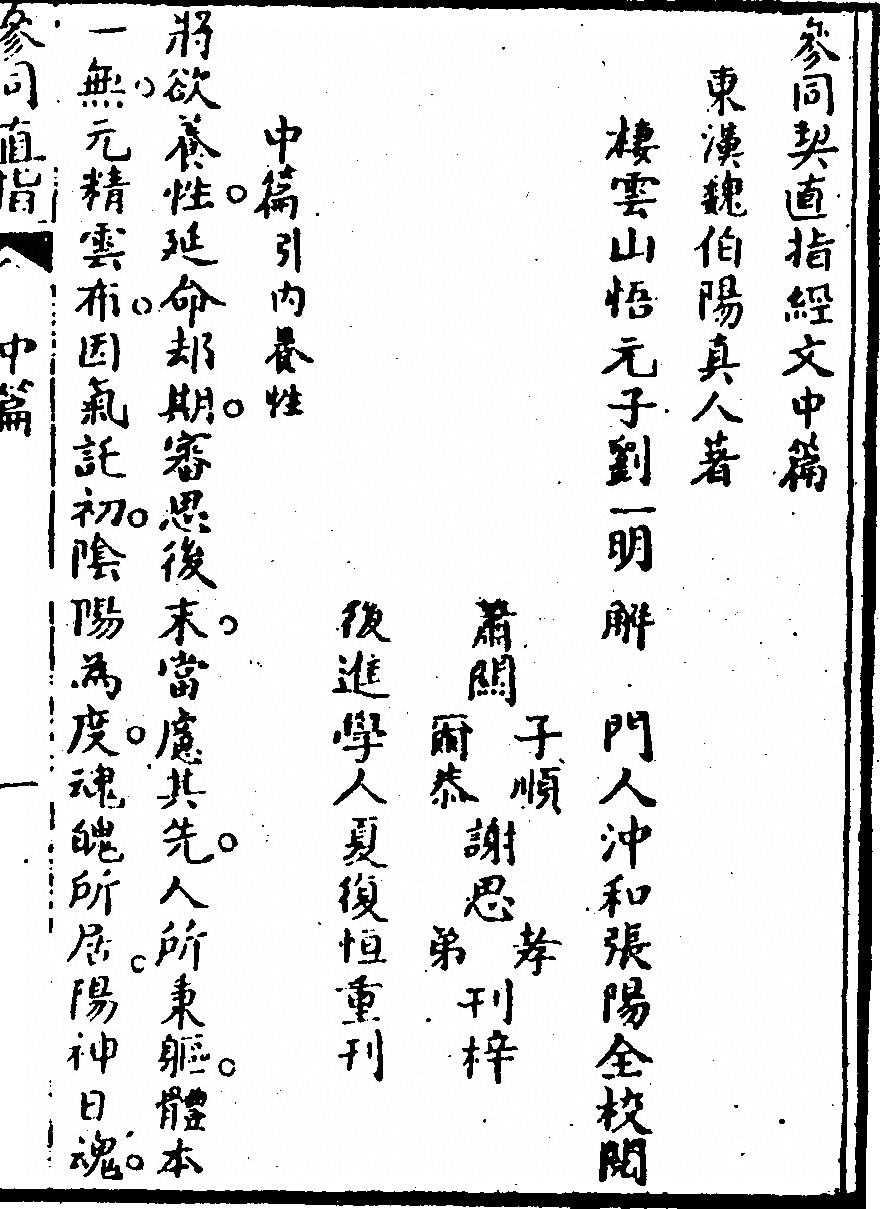 參同契直指經文中篇
東漢魏伯陽真人著
棲雲山悟元子劉一明解 門人沖和張陽全校閱
蕭關 子順 爾恭 謝思 孝 弟 刊梓
後進學人夏復恒重刊
中篇引內養性
將欲養性。延命却期。審思後末。當慮其先。人所秉軀。體本
一無。元精雲布。因氣託初。陰陽為度。魂魄所居。陽神日魂。
參同直指 中篇 一